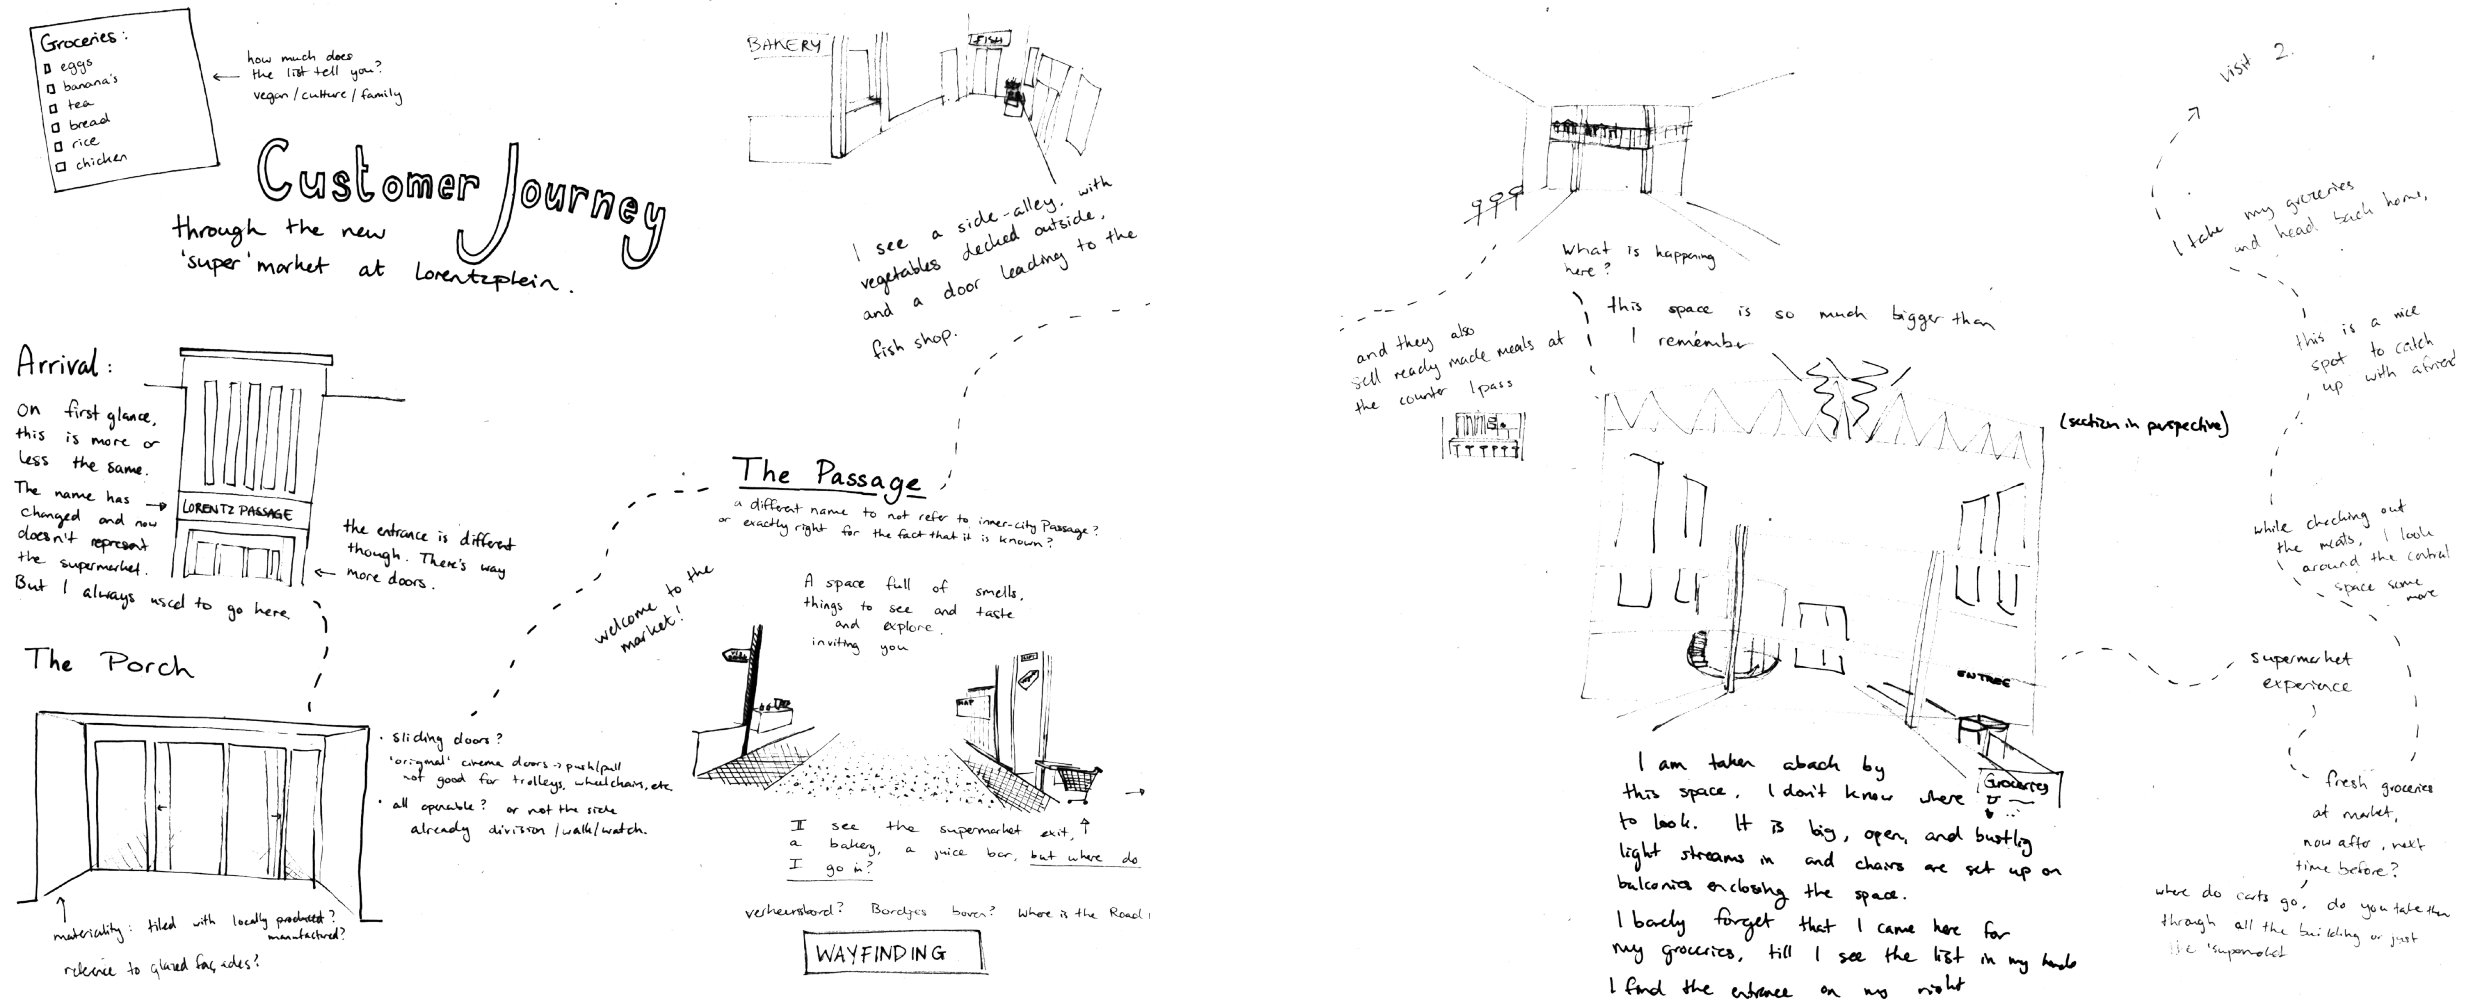 Groceries:
eggs
banana's
tea
bread
rice
chicken
how much does
the list tell you?
vegan/culture/family
Customer Journey
through the new
'super' market at Lorentzplein.
Arrival:
On first glance,
this is more or
less the same.
The name has
changed and now
doesn't represent
the supermarket.
But I always used to go here
LORENTZ PASSAGE
the entrance is different
though. There's way
more doors.
The Porch
• sliding doors?
'original' cinema doors → push/pull
not good for trolleys, wheelchairs, etc.
• all openable? or not the side
already division/walk/watch.
materiality: tiled with locally produced?
manufactured?
reference to glazed façades?
BAKERY
FISH
I see a side-alley, with
vegetables decked outside,
and a door leading to the
fish shop.
The Passage
a different name to not refer to inner-city Passage?
or exactly right for the fact that it is known?
welcome to the
market!
A space full of smells,
things to see and taste
and explore.
inviting you
MAP
I see the supermarket exit,
a bakery, a juice bar, but where do
I go in?
verkeersbord? Bordjes boven? Where is the Road
WAYFINDING
What is happening
here?
and they also
sell ready made meals at
the counter I pass
this space is so much bigger than
I remember
(section in perspective)
ENTREE
Groceries
I am taken aback by
this space. I don't know where
to look. It is big, open, and bustlig
light streams in and chairs are set up on
balconies enclosing the space.
I barely forget that I came here for
my groceries, till I see the list in my hands
I find the entrance on my right
supermarket
experience
fresh groceries
at market,
now after, next
time before?
where do carts go, do you take them
through all the building or just
the 'supermarket
while checking out
the meats, I look
around the central
space some
more
this is a nice
spot to catch
up with a friend
I take my groceries
and head back home,
visit 2.